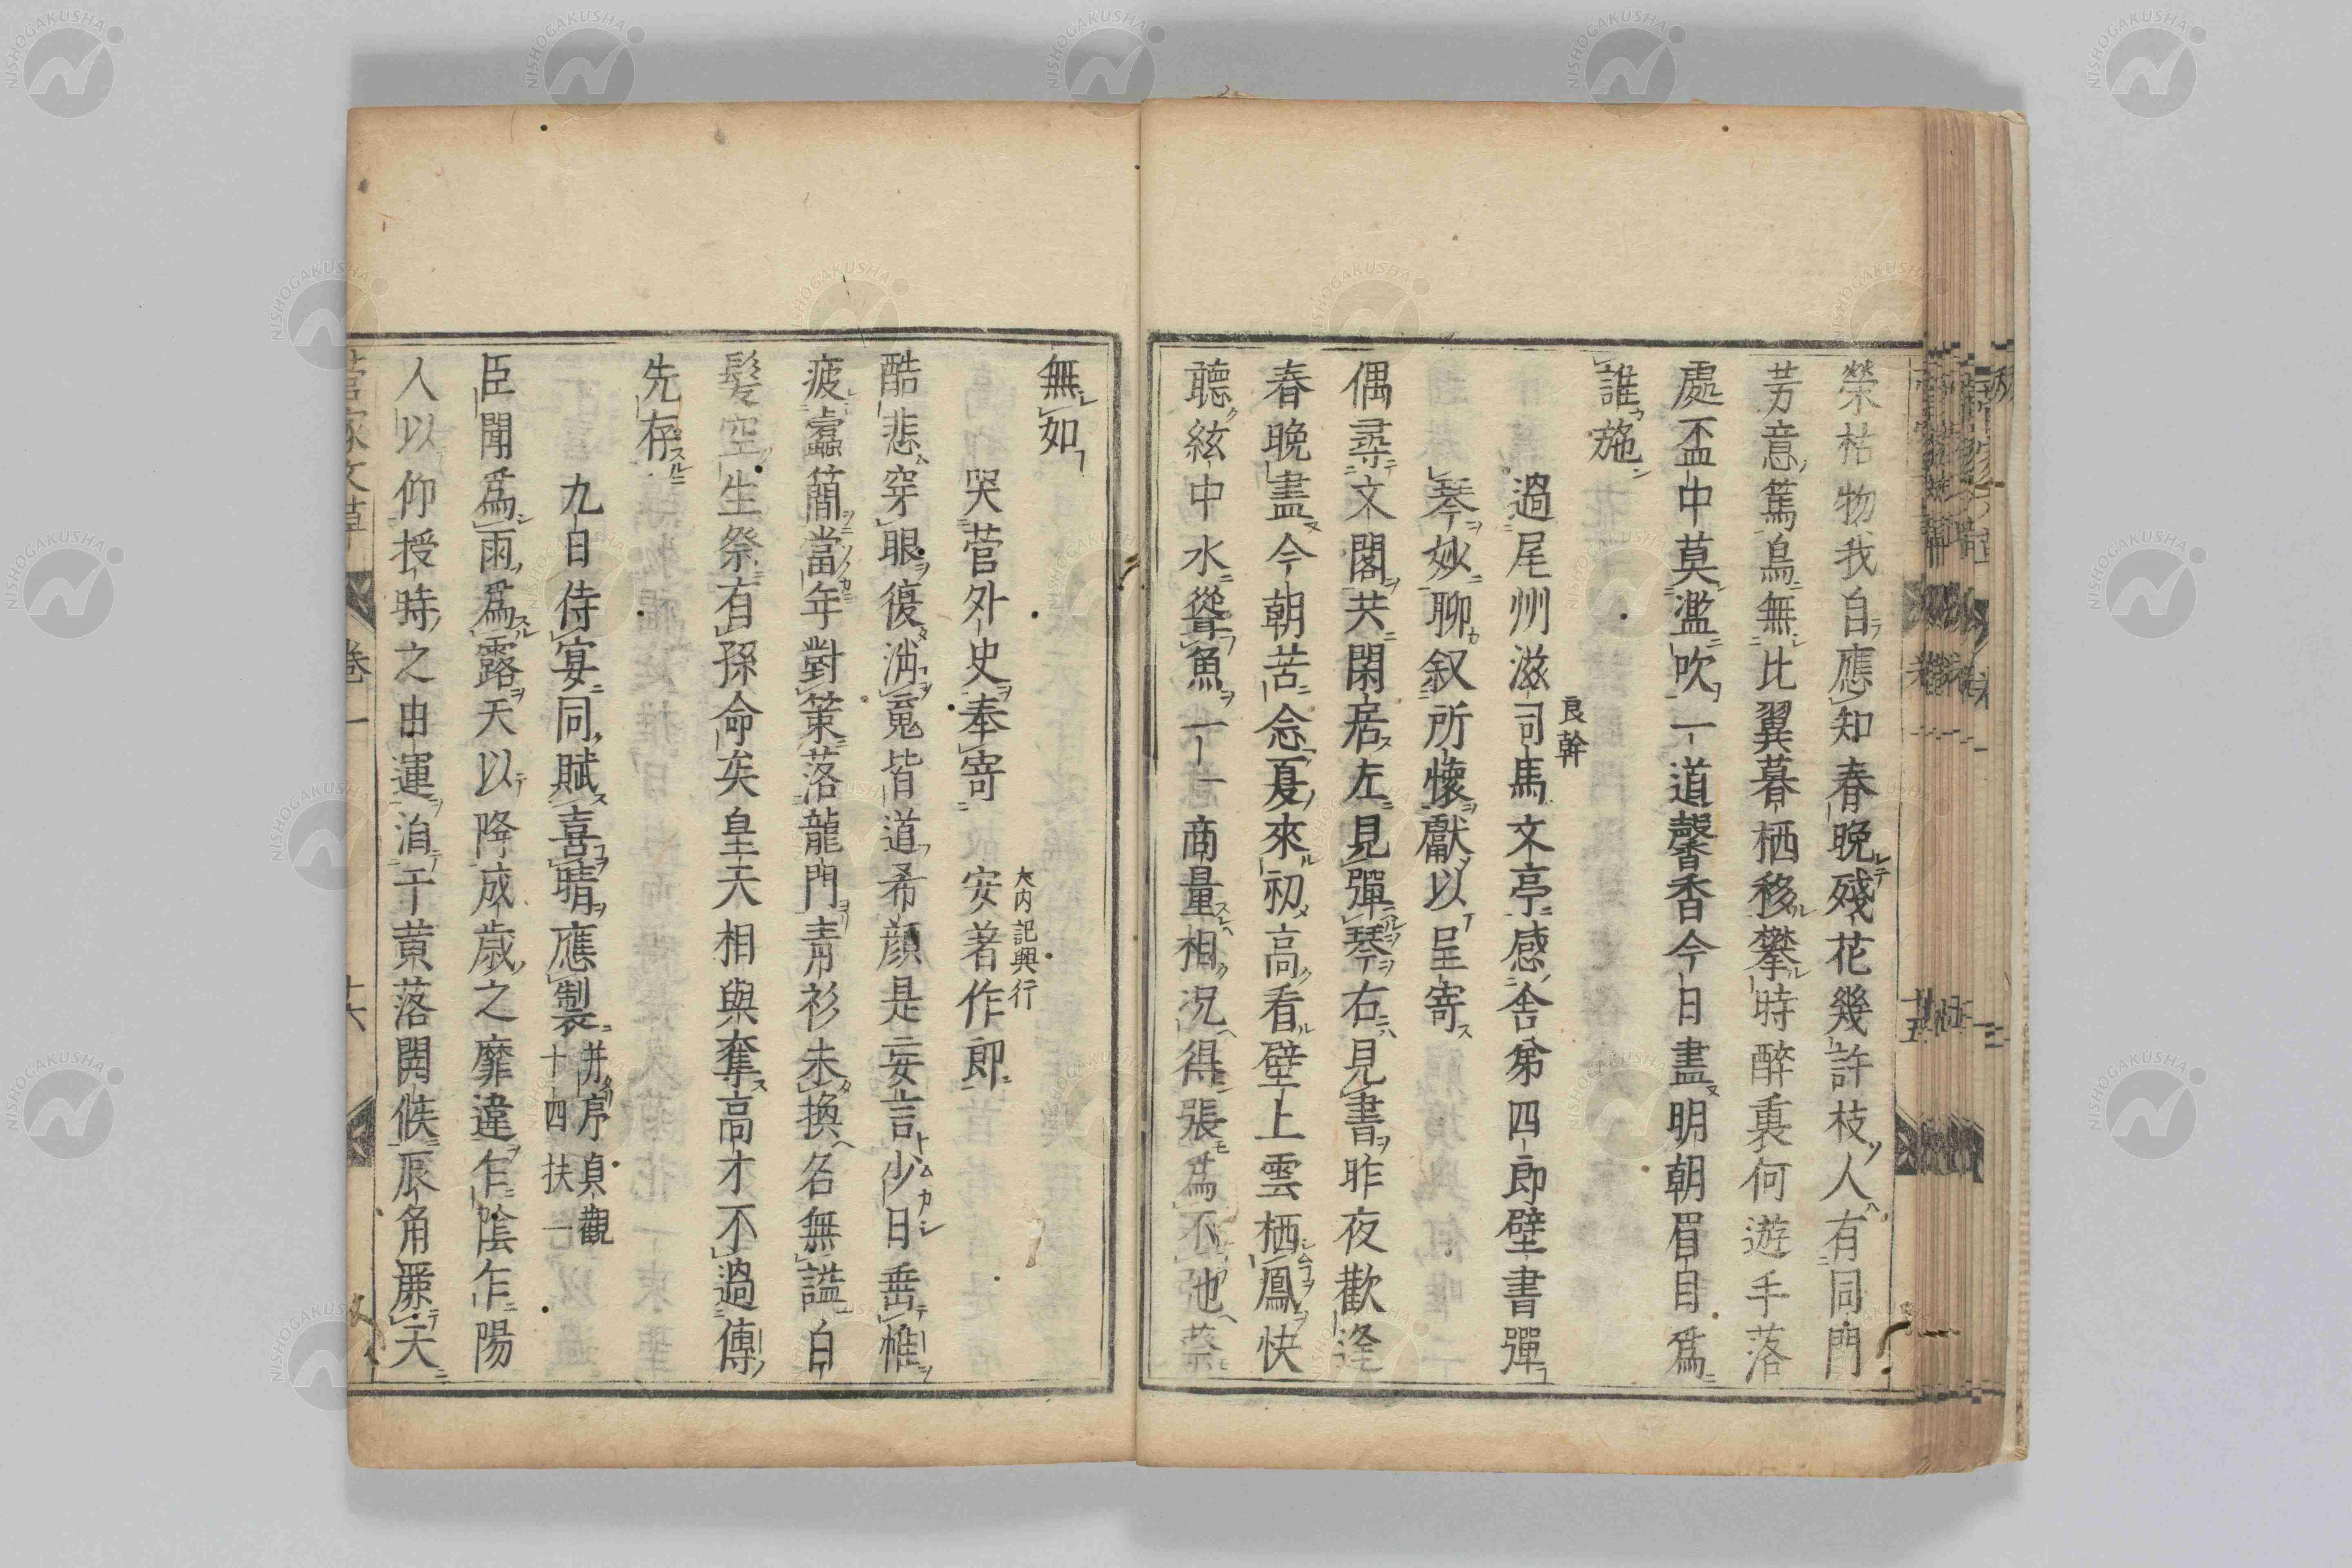 榮枯物我自應知春晩殘花幾許枝人有同門
芳意篤鳥無比翼暮栖移攀時醉裏何遊手落
處盃中莫濫吹一道馨香今日盡明朝眉目爲
誰施
過尾州滋司馬文亭感舍弟四郎壁書彈
良幹
琴妙聊叙所懷獻以呈寄
偶尋文閣共閑居左見彈琴右見書昨夜歡逢
春晩盡今朝苦念夏來初高看壁上雲栖鳳快
聽絃中水聳魚一一商量相况得張爲不弛蔡
無如
哭菅外史奉寄安著作郎
大内記興行
酷悲穿眼復消寃皆道希顔是妄言少日垂帷
疲蠹簡當年對策落龍門青衫未換名無謚白
髮空生祭有孫命矣皇天相與奪高才不過傳
先存
九日侍宴同賦喜晴應製
并序貞觀
十四扶一
臣聞爲雨爲露天以降成歳之靡違乍陰乍陽
人以仰授時之由運洎于黄落闋候辰角厤天
菅家文草 卷一 十六